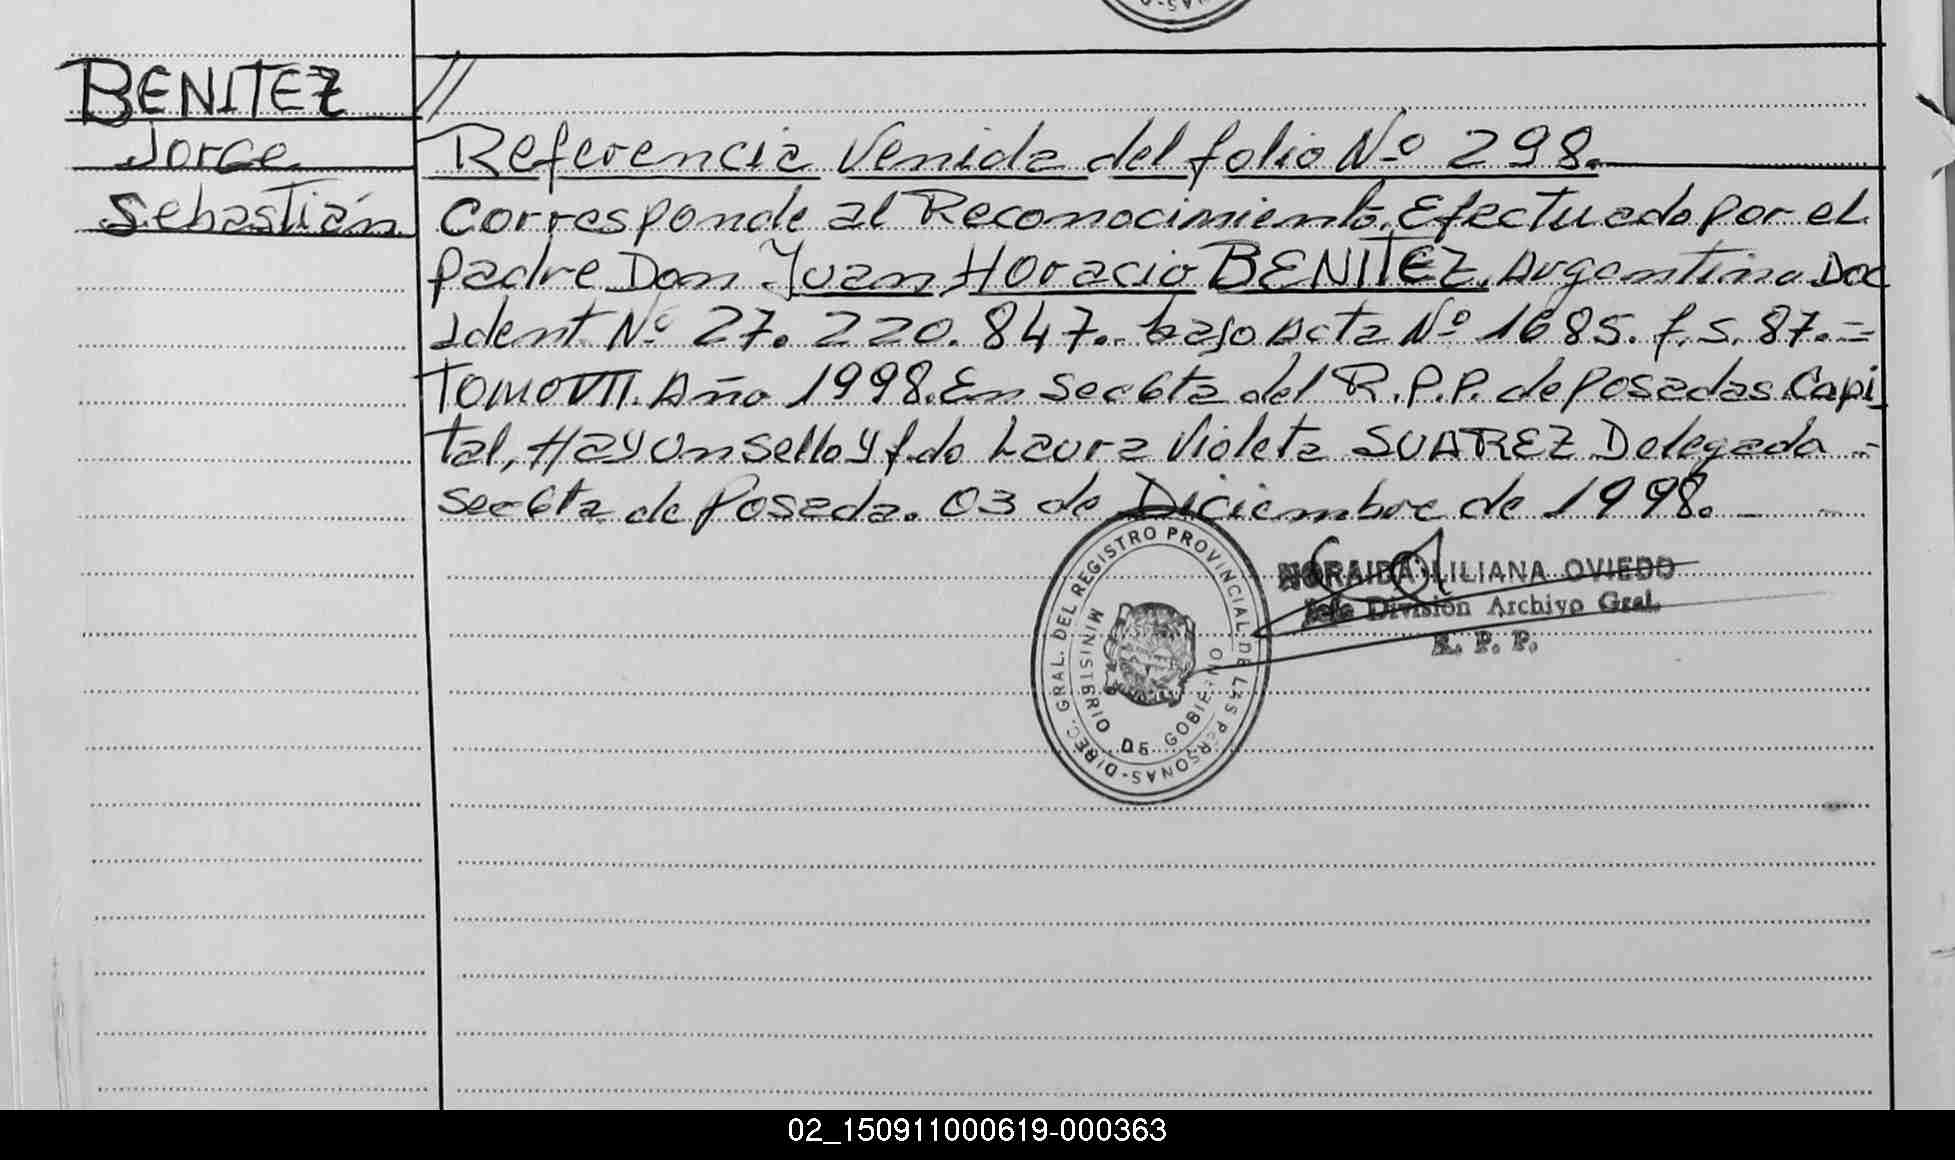 BENITEZ
Jorge
Sebastián
//
Referencia Venida del folio Nº 298.
Corresponde al Reconocimiento, Efectuado por el
padre Don Juan Horacio BENITEZ, Argentino Doc
Ident Nº 27.220.847. bajo Acta Nº 1685. f.s. 87.=
TOMO VII. Año 1998. En Sec 6ta del R.P.P. de Posadas Capi
tal, Hay un sello y f.do Laura Violeta SUAREZ Delegada -
Sec 6ta de Posada. 03 de Diciembre de 1998. - -
DIREC. GRAL. DEL REGISTRO PROVINCIAL DE LAS PERSONAS-
MINISTERIO DE GOBIERNO
NORAIDA LILIANA OVIEDO
Jefe División Archivo Gral.
R. P. P.
02_150911000619-000363